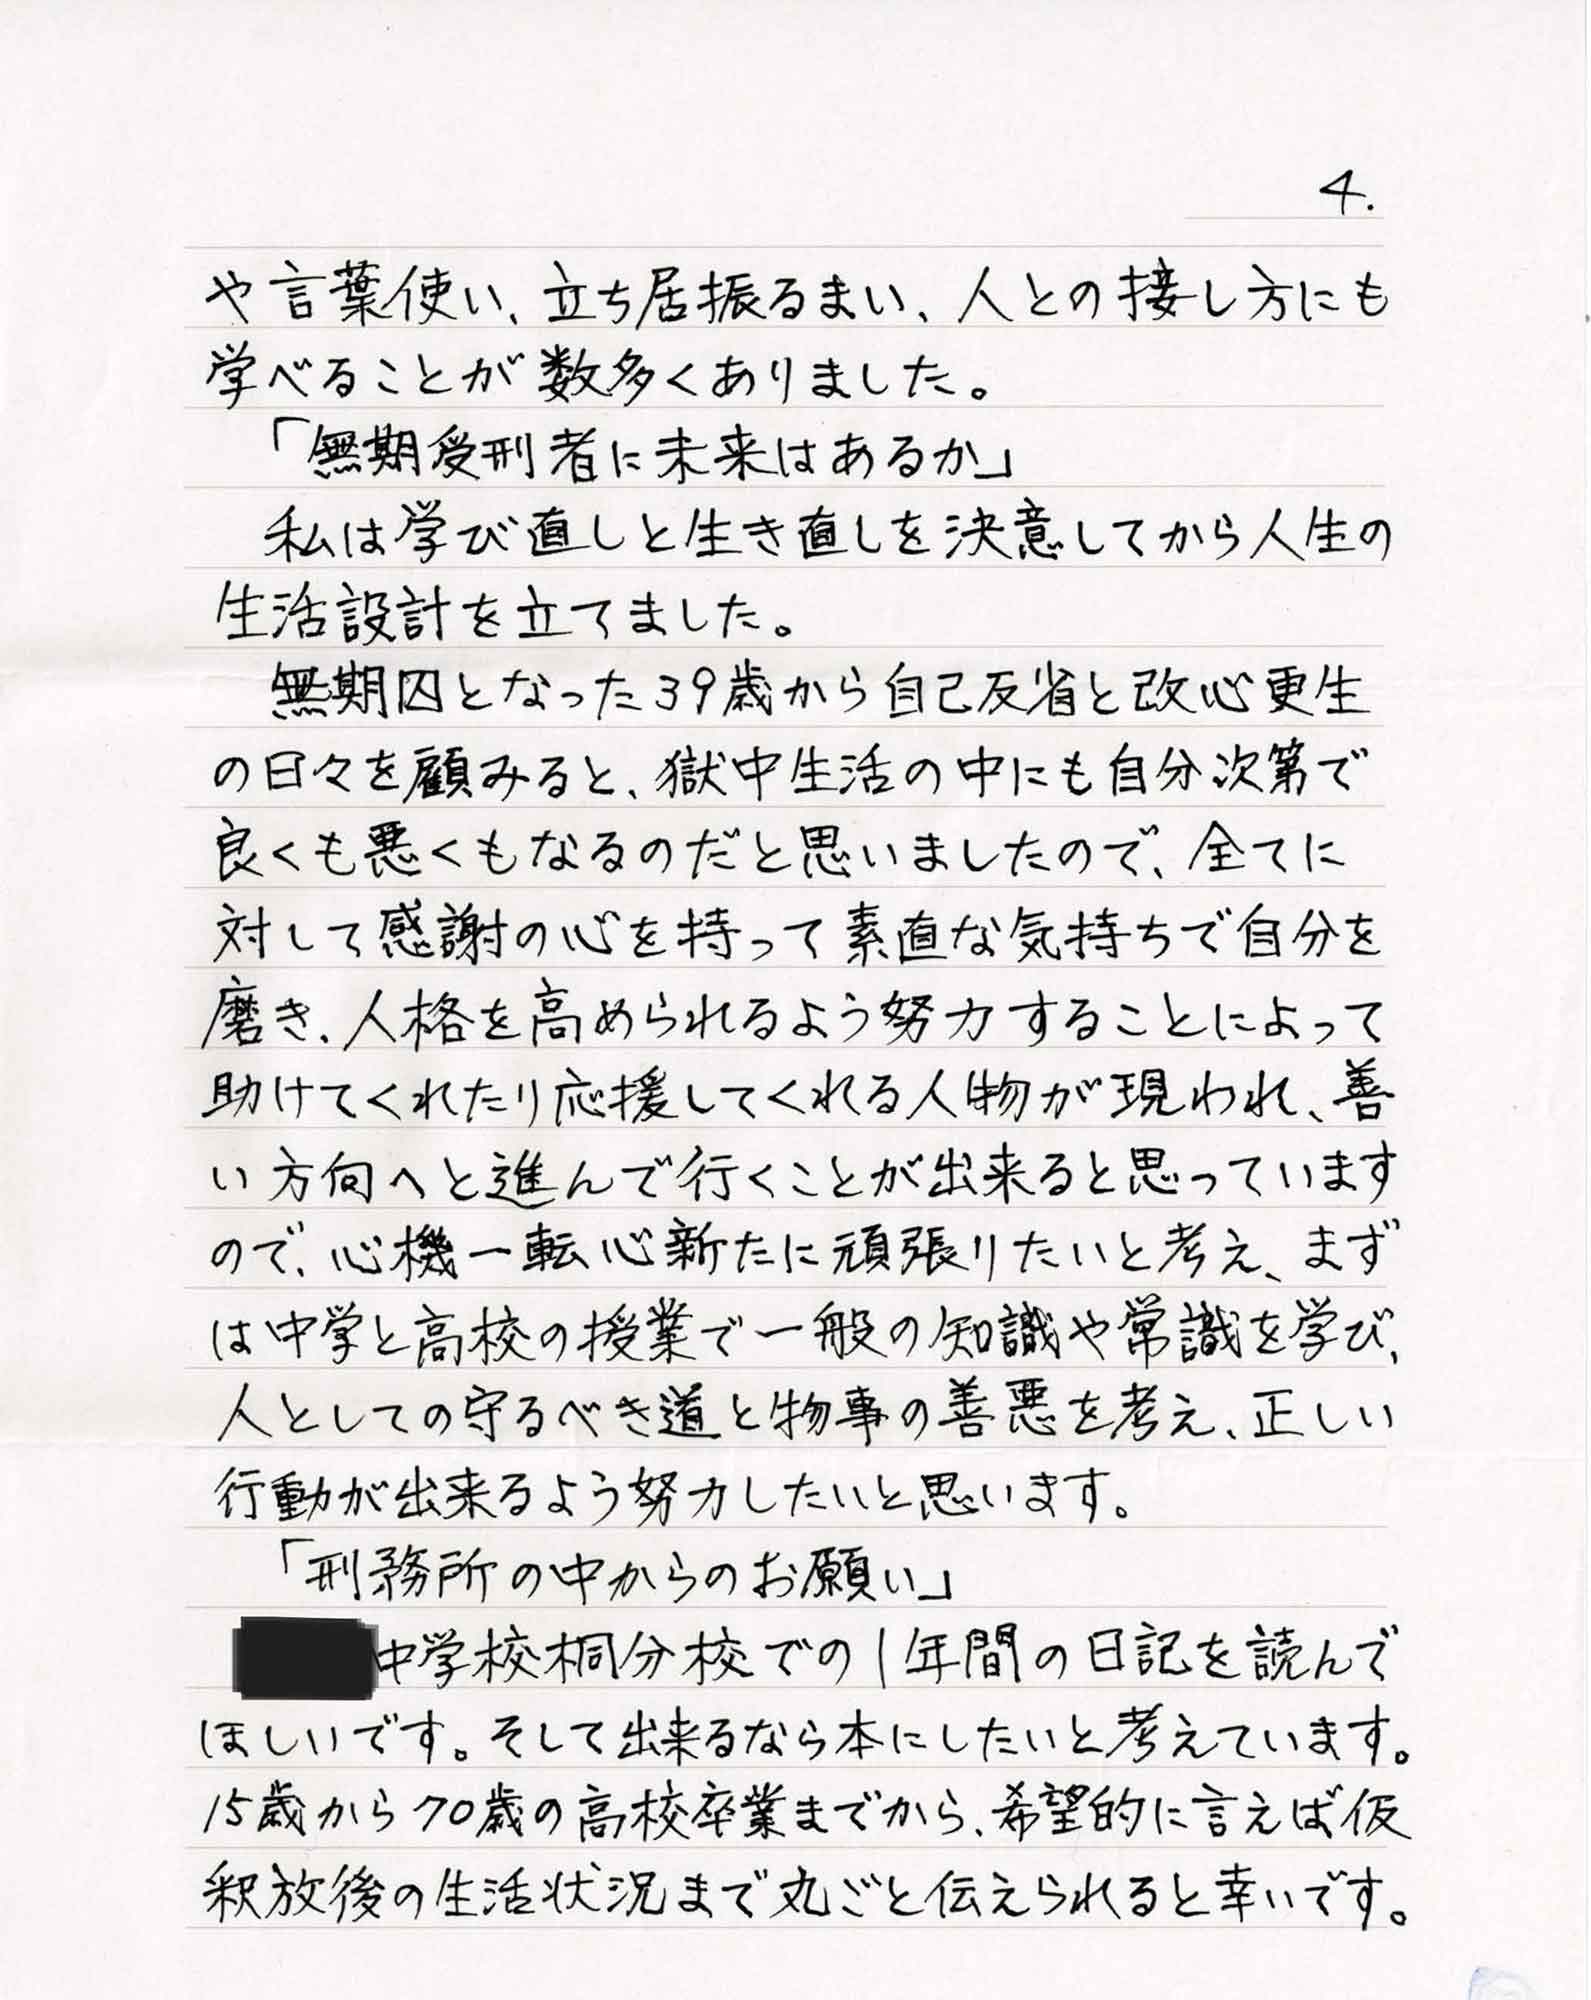 4.
や言葉使い、立ち居振るまい、人との接し方にも
学べることが数多くありました。
「無期受刑者に未来はあるか」
私は学び直しと生き直しを決意してから人生の
生活設計を立てました。
無期囚となった39歳から自己反省と改心更生
の日々を顧みると、獄中生活の中にも自分次第で
良くも悪くもなるのだと思いましたので、全てに
対して感謝の心を持って素直な気持ちで自分を
磨き、人格を高められるよう努力することによって
助けてくれたり応援してくれる人物が現われ、善
い方向へと進んで行くことが出来ると思っています
ので、心機一転心新たに頑張りたいと考え、まず
は中学と高校の授業で一般の知識や常識を学び、
人としての守るべき道と物事の善悪を考え、正しい
行動が出来るよう努力したいと思います。
「刑務所の中からのお願い」
中学校桐分校での1年間の日記を読んで
ほしいです。そして出来るなら本にしたいと考えています。
15歳から70歳の高校卒業までから、希望的に言えば仮
釈放後の生活状況まで丸ごと伝えられると幸いです。